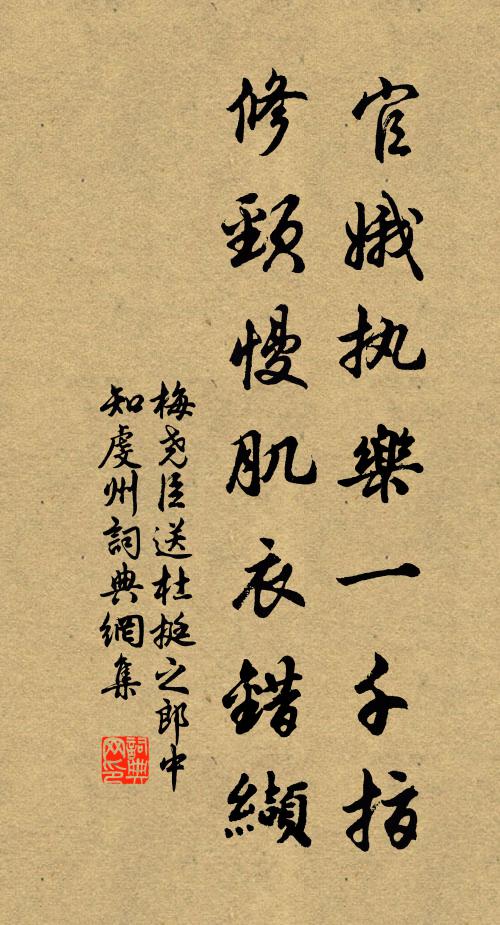 官娥执樂一千指
修頸慢肌衣錯纈
梅尧臣送杜挺之郎中
知虔州詞典網集
詞典
网印